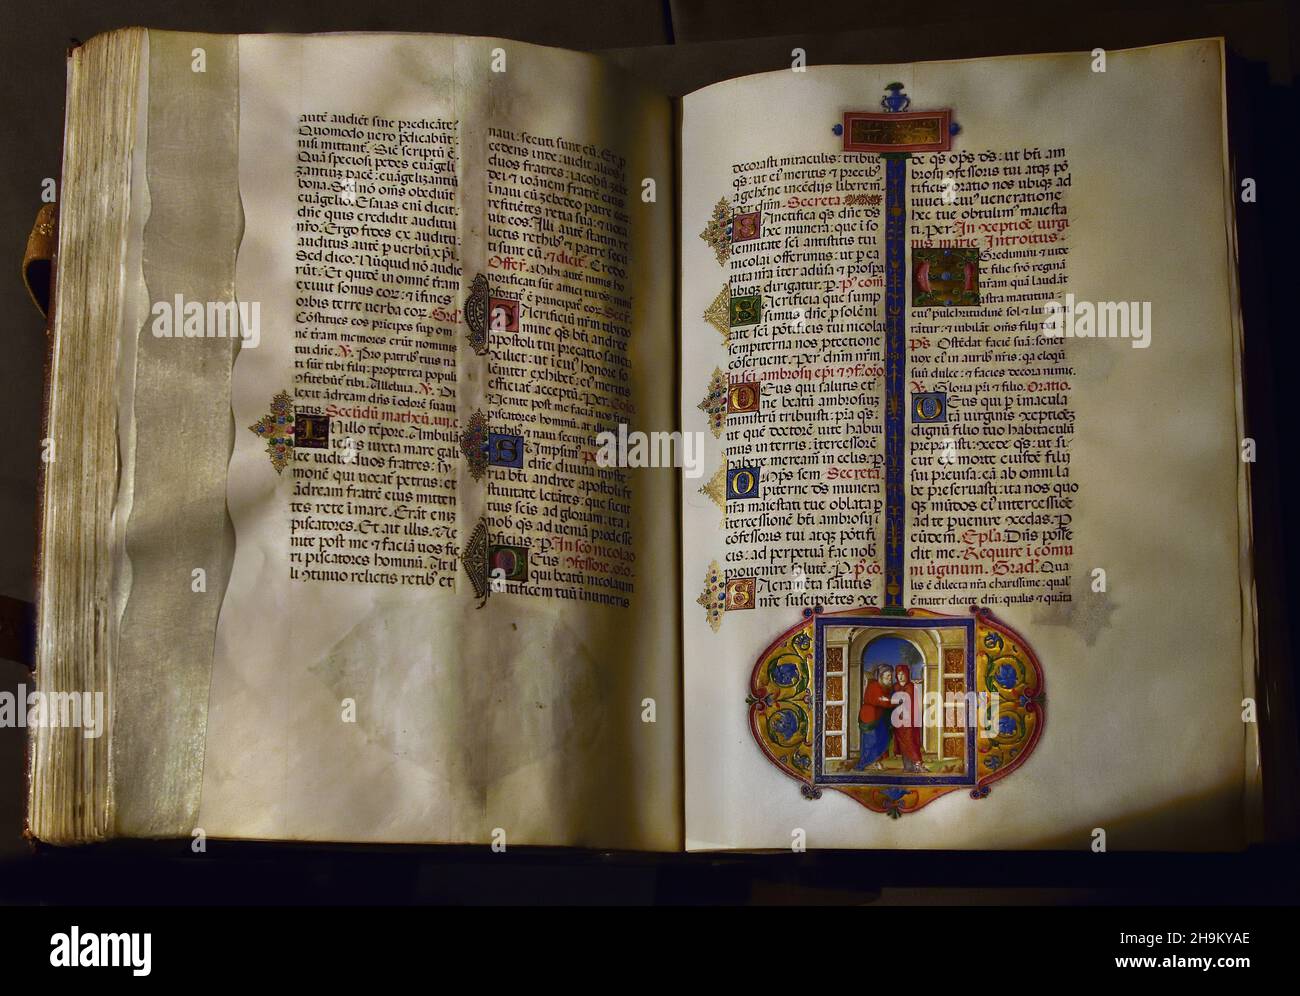 autē audiēt sine predicāte?
Quomodo uero p̄dicabūt:
nisi mittant. Sic scriptū ē.
Quā speciosi pedes euāgeli
zantium pacē: euāgelizantiū
bona. Sed nō om̄s obediunt
euāgelio. Esaias eni dicit:
dn̄e quis credidit auditui
nr̄o. Ergo fides ex auditu:
auditus autē p uerbū xp̄i.
Sed dico. Nūquid nō audie
rūt? Et quidē in omnē terram
exiuit sonus eor: & ī fines
orbis terre uerba eor. Grd̄.
Cōstitues eos prīcipes sup om
nē terram memores erūt nominis
tui dn̄e. ℟. Pro patribus tuis na
ti sūt tibi filii: propterea populi
cōfitebūtur tibi. Alleluia. ℟. Di
lexit ādreā dn̄s ī odorē suaui
tatis. Secūdū mathæū. iiij. c.
IN illo tēpore. Ambulās
iesus iuxta mare gali
lee uidit duos fratres: sy
monē qui uocat petrus: et
ādream fratrē eius mitten
tes rete ī mare. Erāt eniz
piscatores. Et ait illis. Ve
nite post me & faciā uos fie
ri piscatores hominū. At il
li cōtinuo relictis retib⁹ et
naui: secuti sunt eū. Et p
cedens inde: uidit alios
duos fratres: iacobū zebe
dei & ioānem fratrē eius
ī naui cū zebedeo patre eor
reficiētes retia sua: & uoca
uit eos. Illi autē statim re
lictis retib⁹ & patre secu
ti sunt eū. & dicit. Credo.
Offer. Mihi autē nimis ho
norificati sūt amici tui deus: nimis
cōfortat⁹ ē principat⁹ eor. Secr̄.
SAcrificiū nr̄m tibi dn̄e
apostoli tui precatio sancta
cōciliet: ut ī cui⁹ honore so
lēniter exhibet: ei⁹ meritis
efficiat acceptū. Per. Cōio.
Venite post me faciā uos fieri
piscatores hominū. at illi relictis
retib⁹ & naui secuti sunt
SUmpsim⁹
dn̄e diuina myste
ria bt̄i andree apostoli fe
stiuitate letātes: que sicut
tuis scis ad gloriam: ita
nob q̄s ad ueniā prodesse
pficias. P. In sc̄o nicolao
DEus cōfessore. oro.
qui beatū nicolaum
pontificem tuū īnumeris
decorasti miraculis: tribue
q̄s: ut ei⁹ meritis & precib⁹
a gehēne incēdijs liberem̄.
Per dn̄m. Secreta.
SAnctifica q̄s dn̄e ds̄
hec munera: que ī so
lēnitate sc̄i antistitis tui
nicolai offerimus: ut p ea
uita nr̄a īter aduersa & prospa
ubiq̄ dirigatur. P. Pꝰ com̄.
SAcrificia que sump
simus dn̄e: p solēni
tate sc̄i pōtificis tui nicolai
sempiterna nos ptectione
cōseruent. Per dn̄m nr̄m.
In sc̄i ambrosij epi & cōf. oro.
DEus qui salutis et
ne beatū ambrosiuz
ministrū tribuisti: pr̄a q̄s:
ut quē doctorē uite habui
mus in terris: ītercessorē
habere meream̄ in celis. P.
OMps̄ sem Secreta.
piterne ds̄ munera
nr̄a maiestati tue oblata p
ītercessionē bt̄i ambrosij
cōfessoris tui atq̄ pōtifi
cis: ad perpetuā fac nob
prouenire salutē. P. Pꝰ cō.
SAcramēta salutis
nr̄e suscipiētes cōce
de q̄s op̄s ds̄: ut bt̄i am
brosij cōfessoris tui atq̄ pō
tificis oratio nos ubiq̄ ad
iuuet: in cui⁹ ueneratione
hec tue obtulim⁹ maiesta
ti. Per. In cōceptiōe uirgi
nis marie. Introitus.
EGredimini & uide
te filie siō reginā
uestrā quam laudāt
astra matutina:
cui⁹ pulchritudinē sol & luna mi
rātur: & iubilāt om̄s filij dei.
Ps̄. Ostēdat faciē suā: sonet
uox ei⁹ in aurib⁹ nr̄is: q̄a eloquiū
suū dulce: & facies decora nimis.
℟. Gloria pr̄i & filio. Oratio.
DEus qui p īmacula
tā uirginis cōceptiōe
dignū filio tuo habitaculū
preparasti: cōcede q̄s: ut si
cut ex morte eiusdē filij
sui preuisa: eā ab omni la
be preseruasti: ita nos quo
q̄ mūdos ei⁹ intercessiōe
ad te puenire cōcedas. P.
eūdem. Epl̄a. Dn̄s posse
dit me. Require ī comu
ni uirginum. Grad̄. Qua
lis ē dilecta nr̄a charissime: qual'
ē mater dicite dn̄i: qualis & quāta
alamy
Image ID: 2H9KYAE
www.alamy.com